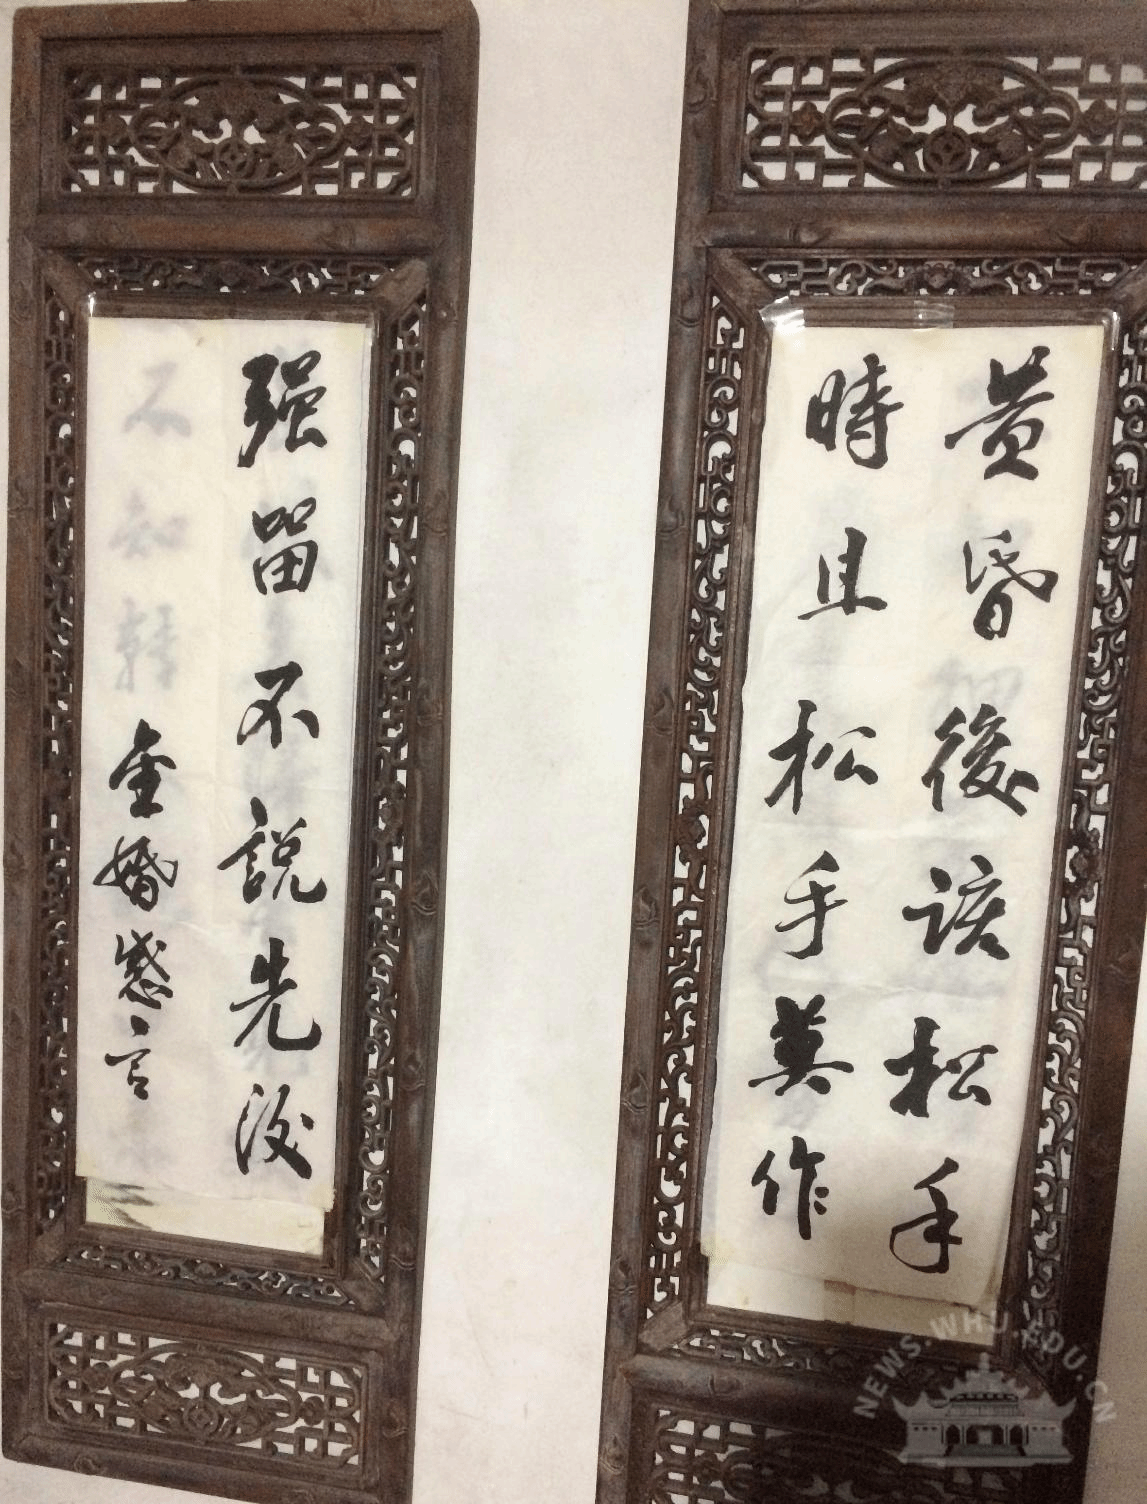 黄昏後該松手
時且松手莫作
强留不說先後
金婚感言
NEWS.WHU.EDU.CN